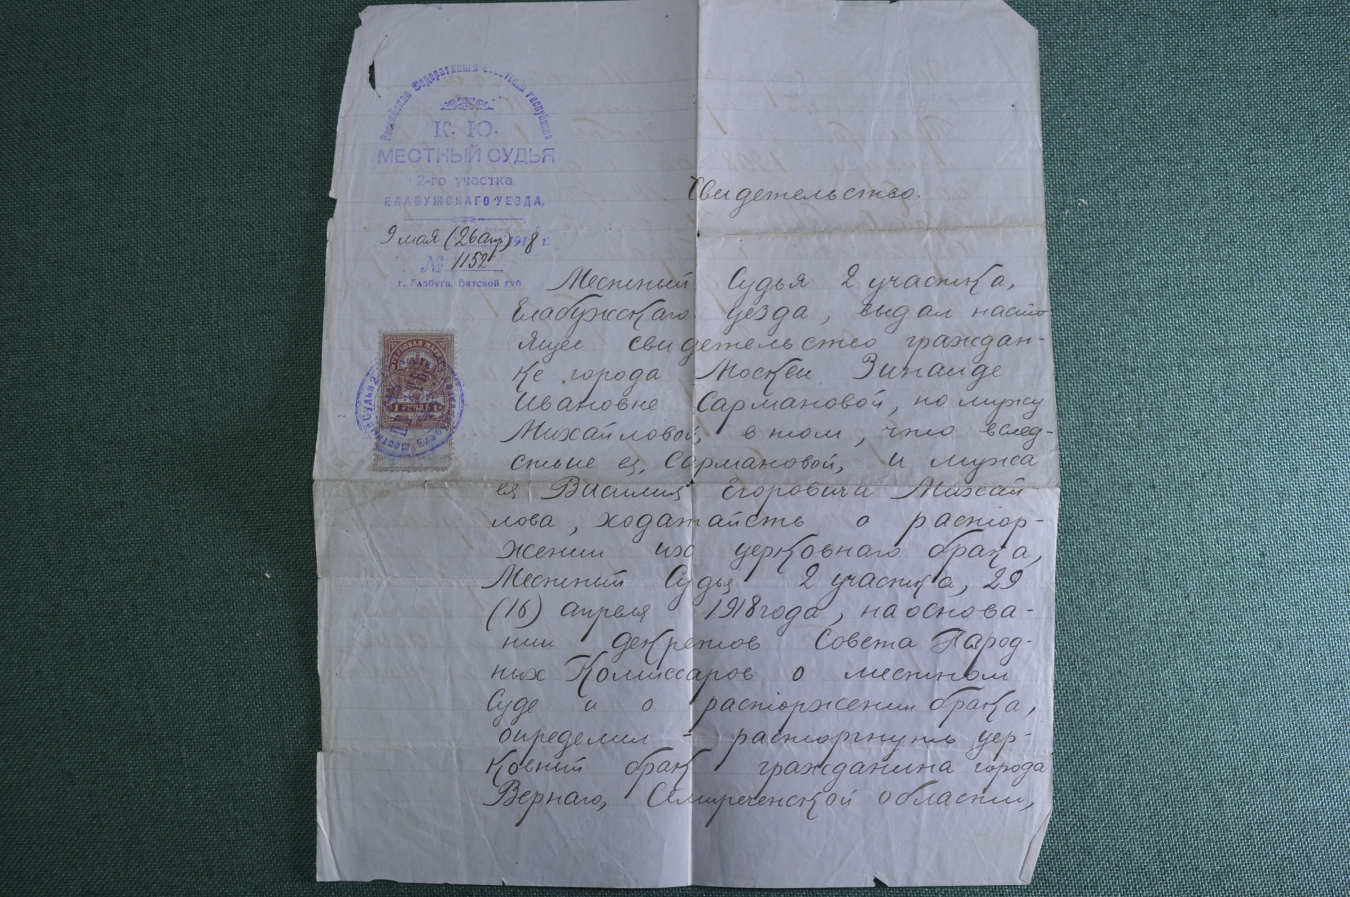 Российская Федеративная Советская Республика
К. Ю.
МЕСТНЫЙ СУДЬЯ
2-го участка
ЕЛАБУЖСКАГО УЕЗДА,
9 мая (26 апр) 1918 г.
№ 1152
г. Елабуга, Вятской губ.
Свидетельство.
Местный Судья 2 участка,
Елабужскаго уезда, выдал насто-
ящее свидетельство граждан-
ке города Москвы Зинаиде
Ивановне Сармановой, по мужу
Михайловой, в том, что вслед-
ствие ея, Сармановой, и мужа
ея Василия Егоровича Михай-
лова, ходатайств о растор-
жении их церковнаго брака,
Местный Судья 2 участка, 29
(16) апреля 1918 года, на основа-
нии декретов Совета Народ-
ных Комиссаров о местном
суде и о расторжении брака,
определил - расторгнуть цер-
ковный брак гражданина города
Вернаго, Семиреченской области,
Местный Судья 2
1 РУБЛЬ 1